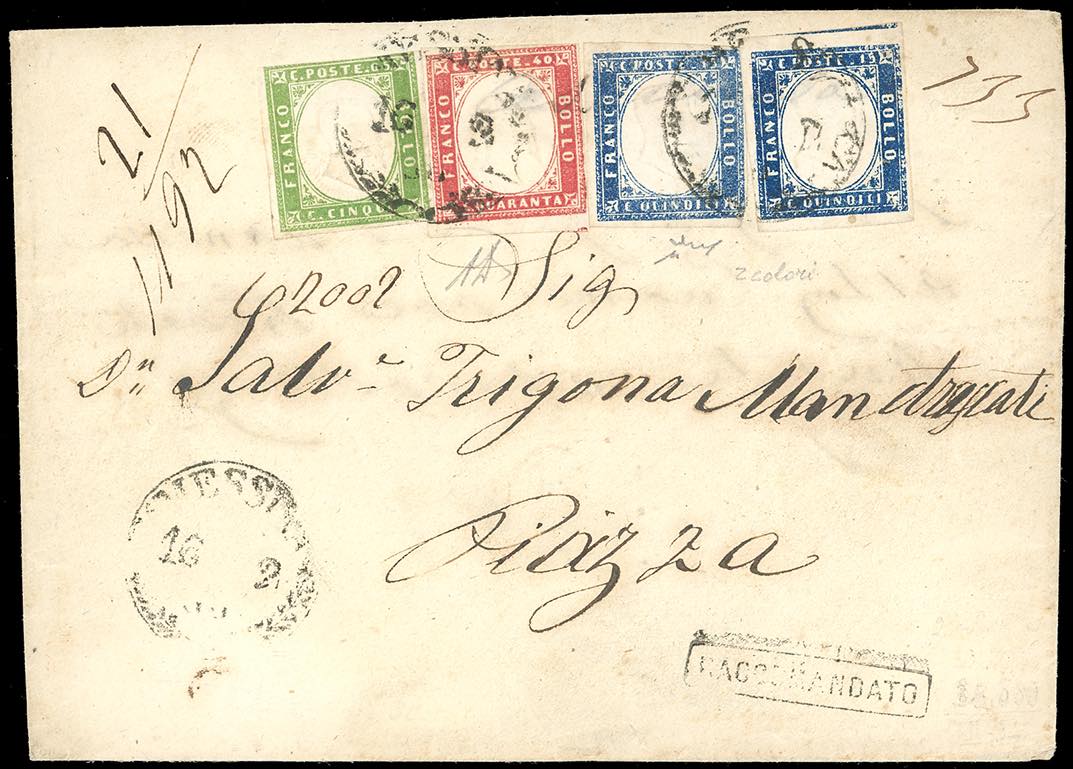 21
1192
733
C. POSTE.
FRANCO
BOLLO
C. CINQ
C. POSTE. 40
FRANCO
BOLLO
QUARANTA
C. POSTE.
FRANCO
BOLLO
C QUINDICI
C. POSTE. 15
FRANCO
BOLLO
C QUINDICI
16
2 colori
Sig
2002
Dn Salve Trigona
Piazza
MESSINA
16 2
RACCOMANDATO